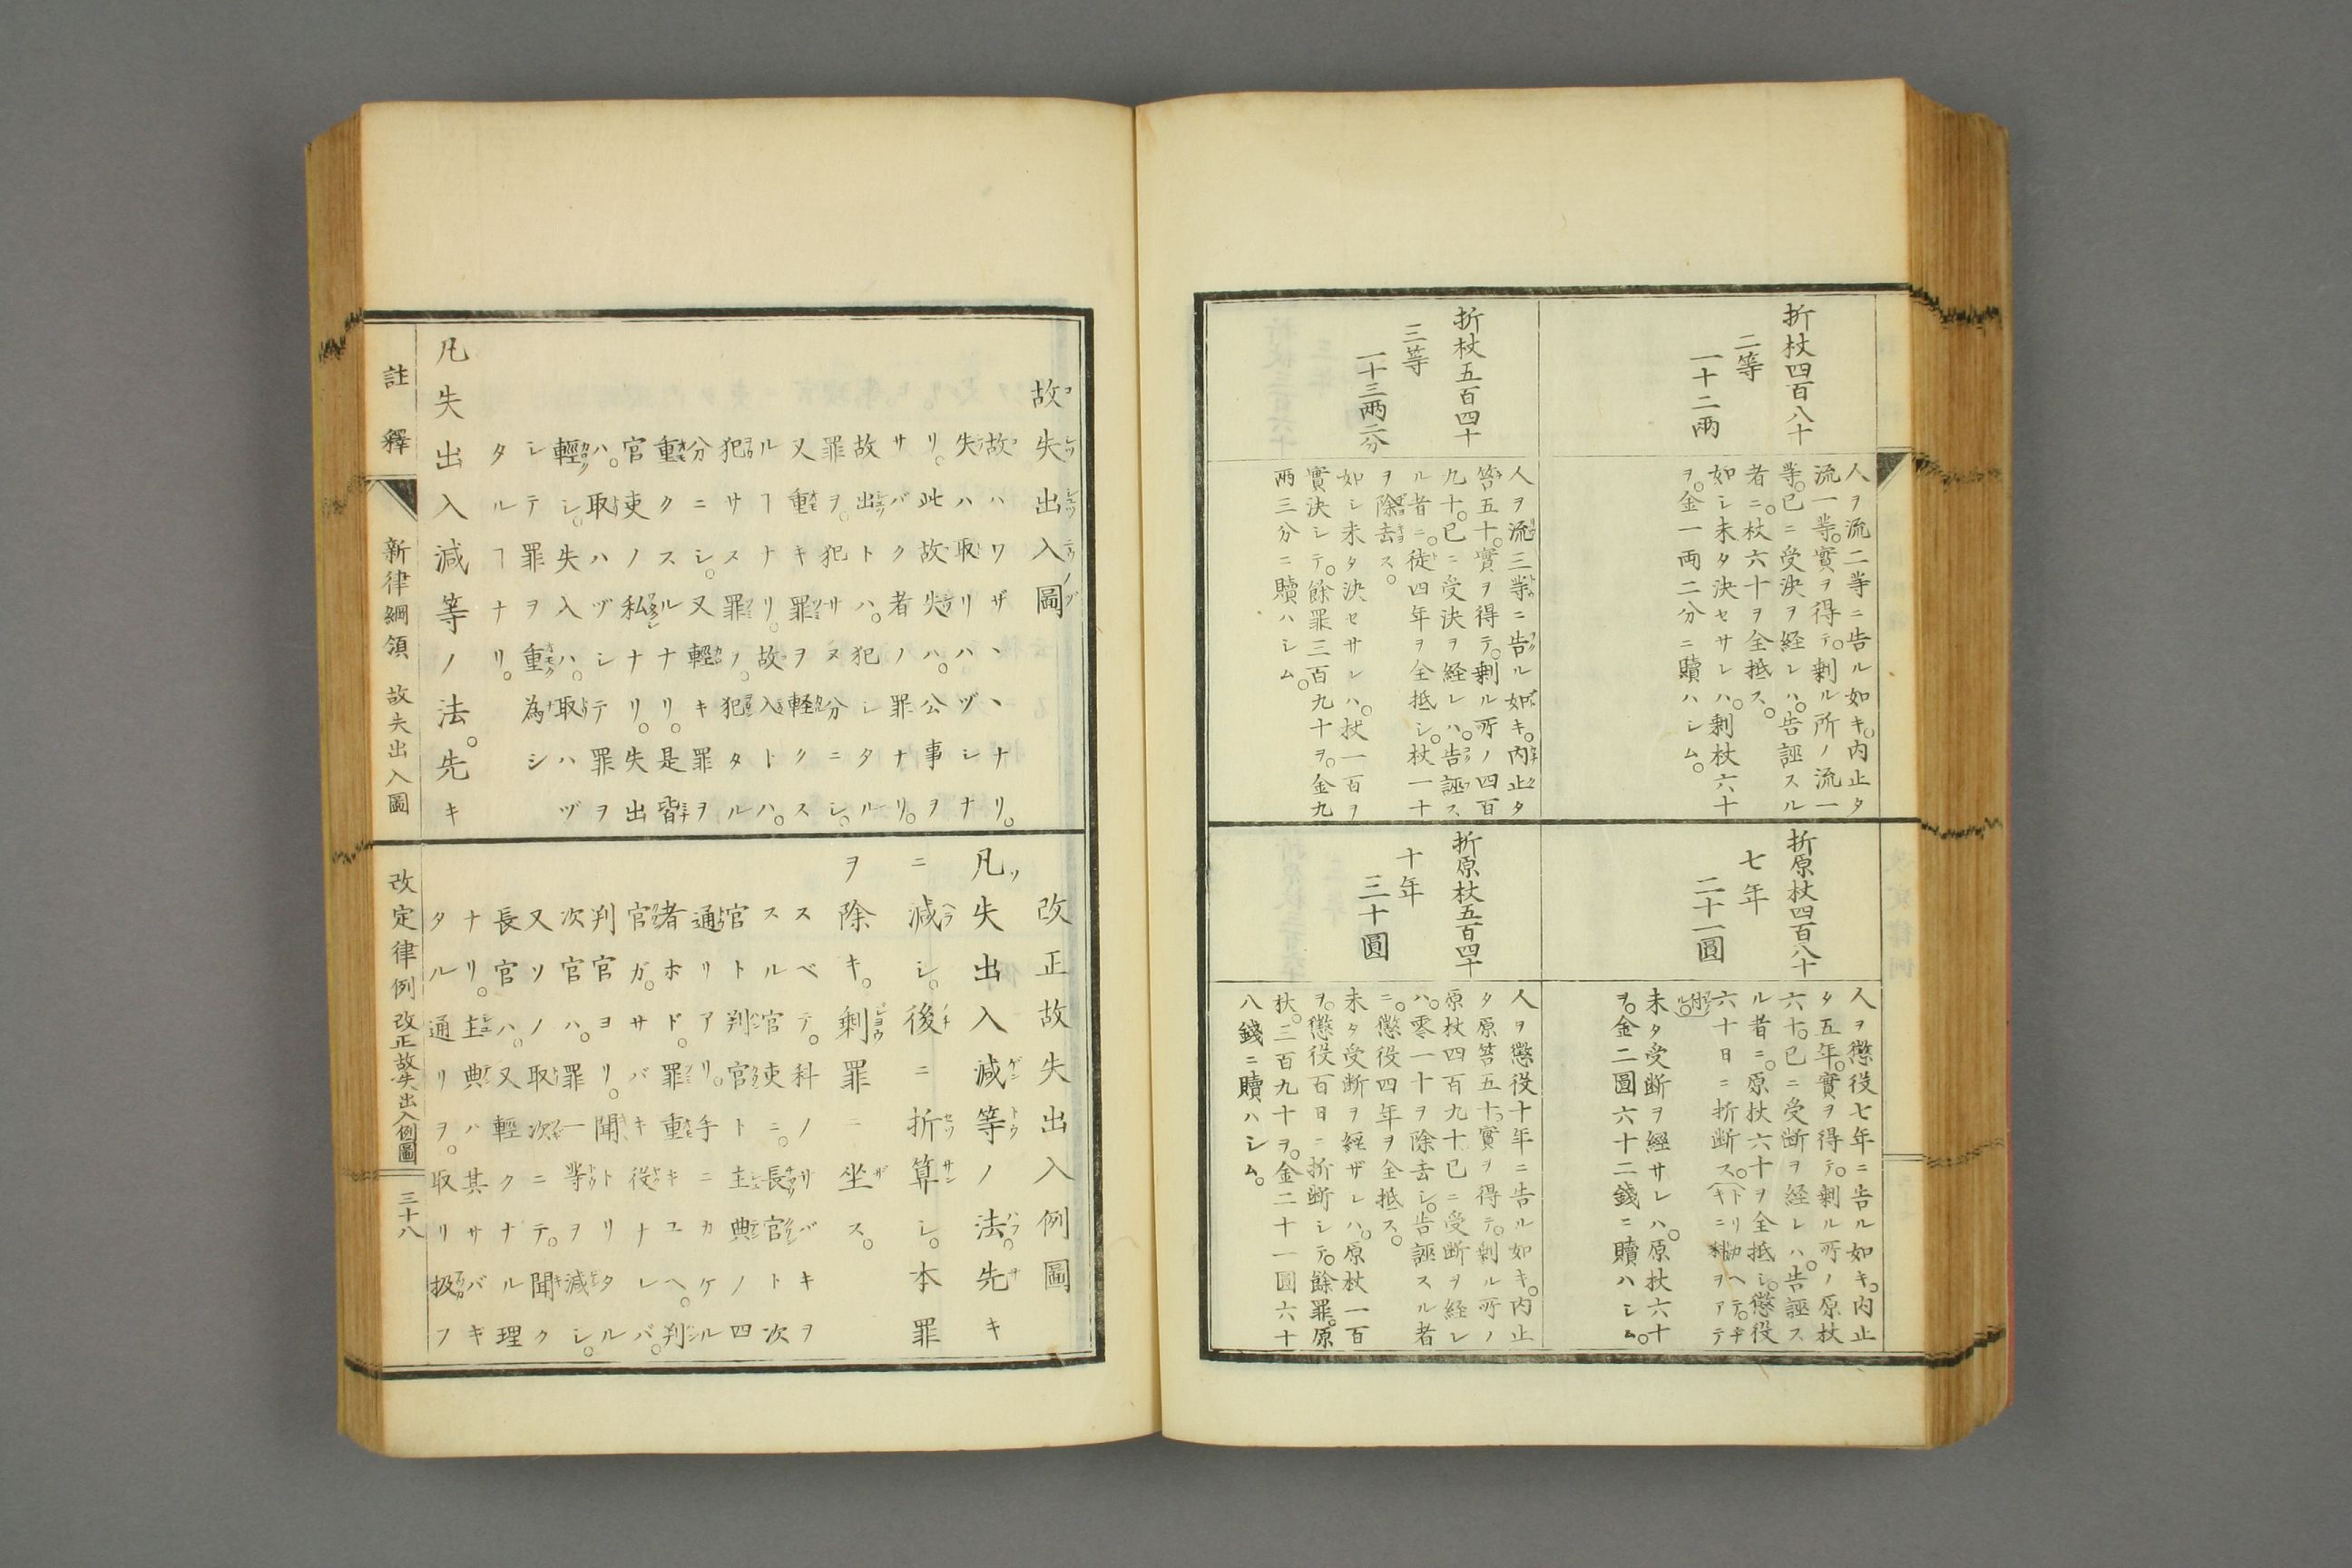 折杖四百八十
二等
一十二兩
人ヲ流二等ニ告ル如キ。內止タ
流一等。實ヲ得テ。剰ル所ノ流一
等。已ニ受決ヲ経レハ。告誣スル
者ニ。杖六十ヲ全抵ス。
如シ未タ決セサレハ。剰杖六十
ヲ。金一両二分ニ贖ハシム。
折杖五百四十
三等
一十三兩二分
人ヲ流三等ニ告ル如キ。內止タ
笞五十。實ヲ得テ。剰ル所ノ四百
九十。已ニ受決ヲ経レハ。告誣ス
ル者ニ。徒四年ヲ全抵シ。杖一十
ヲ除去ス。
如シ未タ決セサレハ。杖一百ヲ
實決シテ。餘罪三百九十ヲ。金九
両三分ニ贖ハシム。
折原杖四百八十
七年
二十一圓
人ヲ懲役七年ニ告ル如キ。内止
タ五年。實ヲ得テ。剰ル所ノ原杖
六十。已ニ受断ヲ経レハ。告誣ス
ル者ニ。原杖六十ヲ全抵シ。懲役
六十日ニ折断ス。
未タ受断ヲ經サレハ。原杖六十
ヲ。金二圓六十二錢ニ贖ハシム。
折原杖五百四十
十年
三十圓
人ヲ懲役十年ニ告ル如キ。内止
タ原笞五十。實ヲ得テ。剰ル所ノ
原杖四百九十已ニ受断ヲ経レ
ハ。零一十ヲ除去シ。告誣スル者
ニ。懲役四年ヲ全抵ス。
未タ受断ヲ経ザレハ。原杖一百
ヲ。懲役百日ニ折断シテ。餘罪。原
杖。三百九十ヲ。金二十一圓六十
八錢ニ贖ハシム。
故失出入圖
故ハワザヽヽナリ。
失ハ取リハヅシナ
リ。此故失ハ。公事ヲ
サバク者ノ罪ナリ。
故出トハ。犯シタル
罪ヲ。犯サヌ分ニシ。
又重キ罪ヲ軽クス
ルヿナリ。故入トハ。
犯サス罪ノ。犯タル
分ニシ。又輕キ罪ヲ
重クスルナリ。是皆
官吏ノ私ナリ。失出
ハ。取ハヅシテ罪ヲ
輕シ。失入ハ。取ハヅ
シテ罪ヲ重為シ
タルヿナリ。
凡失出入減等ノ法。先キ
改正故失出入例圖
凡失出入減等ノ法。先キ
ニ減シ。後ニ折算シ。本罪
ヲ除キ。剰罪ニ坐ス。
スベテ。科ノサバキヲ
スル官吏ニ。長官ト次
官ト判官ト主典ノ四
通リアリ。手ニカケル
者ホド。罪重キユヘ。判
官ガ。サバキ役ナレバ。
判官ヨリ。聞トリタル
次官ハ。罪一等ヲ減シ。
又ソノ取次ニテ。聞ク
長官ハ。又輕クナル理
ナリ。主典ハ其サバギ
タル通リヲ。取リ扱フ
註釋
新律綱領 故失出入圖
改定律例 改正故失出入例圖
三十八